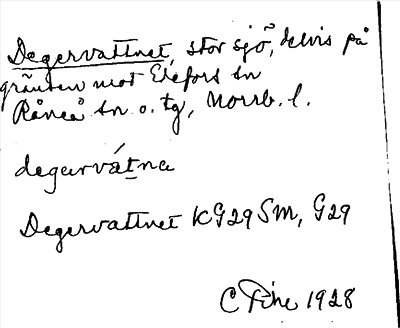 Degervattnet, stor sjö, delvis på
gränsen mot Edefors sn
Råneå sn o. tg, Norrb. l.
degarvátna
Degervattnet KG29SM, G29
C Fihe 1928